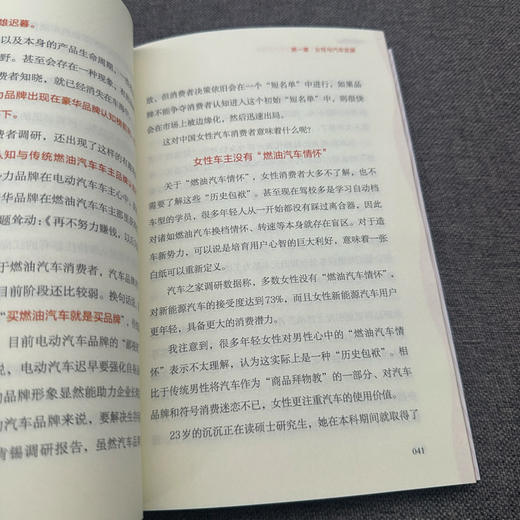 雄迟暮。
以及本身的产品生命周期，一
野。甚至会存在一种现象，
费者知晓，就已经消失在车海
力品牌出现在豪华品牌认知榜
下。
者调研，还出现了这样的有
认知与传统燃油汽车车主品牌
力品牌在电动汽车车主心中，
华品牌在燃油汽车车主那里
题耸动：《再不努力赚钱，以
于燃油汽车消费者，汽车品牌
目前阶段还比较弱。换句话说，
“买燃油汽车就是买品牌”，
目前电动汽车品牌的“鄙
说，电动汽车迟早要强化自
力品牌形象显然能助力企业
汽车品牌来说，要解决生
肯锡调研报告，虽然汽车品
第一章 女性与汽车世界
致，但消费者决策依旧会在一个“短名单”中进行，如果品
牌不能争夺消费者认知进入这个初始“短名单”中，则很快
会在市场上被边缘化，然后迅速出局。
这对中国女性汽车消费者意味着什么呢？
女性车主没有“燃油汽车情怀”
关于“燃油汽车情怀”，女性消费者大多不了解，也不
需要了解这些“历史包袱”。甚至现在驾校多是学习自动档
车型的学员，很多年轻人从一开始都没有踩过离合器，因此
对诸如燃油汽车换档情怀、转速等本就存在盲区。对于造
车新势力，可以说是培育用户心智的巨大利好，意味着一张
白纸可以重新定义。
汽车之家调研数据称，多数女性没有“燃油汽车情怀”，
对新能源汽车的接受度达到73%，而且女性新能源汽车用户
更年轻，具备更大的消费潜力。
我注意到，很多年轻女行对男性心中的“燃油汽车情
怀”表示不太理解，认为这实际上是一种“历史包袱”。相
比于传统男性将汽车作为“商品拜物教”的一部分、对汽车
品牌和符号消费迷恋不已，女性更注重汽车的使用价值。
23岁的沉沉正在读硕士研究生，她在本科期间就取得了
041